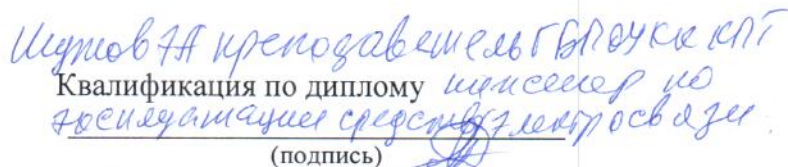 Шутов ЭА преподаватель ГБПОУ КК КПТ
Квалификация по диплому инженер по
эксплуатации средств электросвязи.
(подпись)